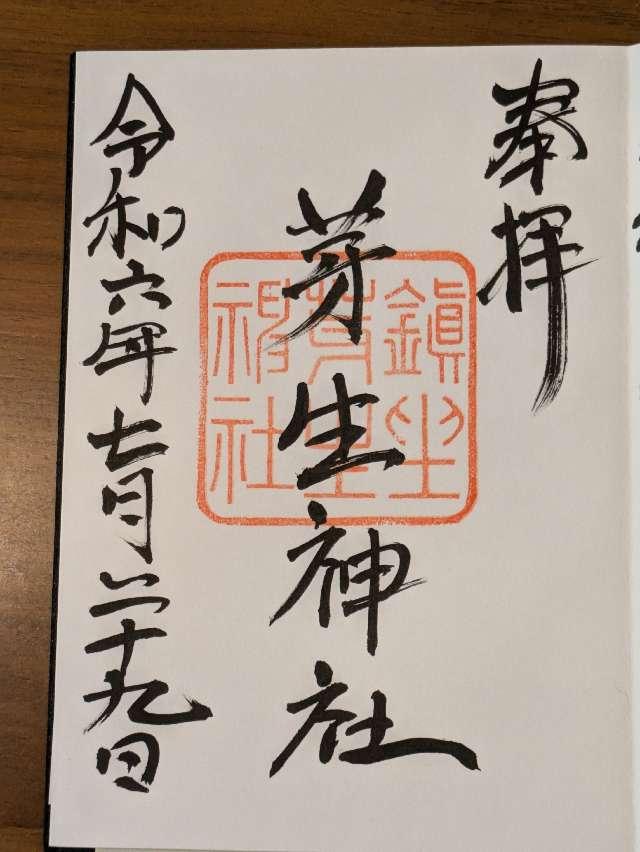 奉拝
芽生神社
鎮坐
芽生
神社
令和六年七月二十九日